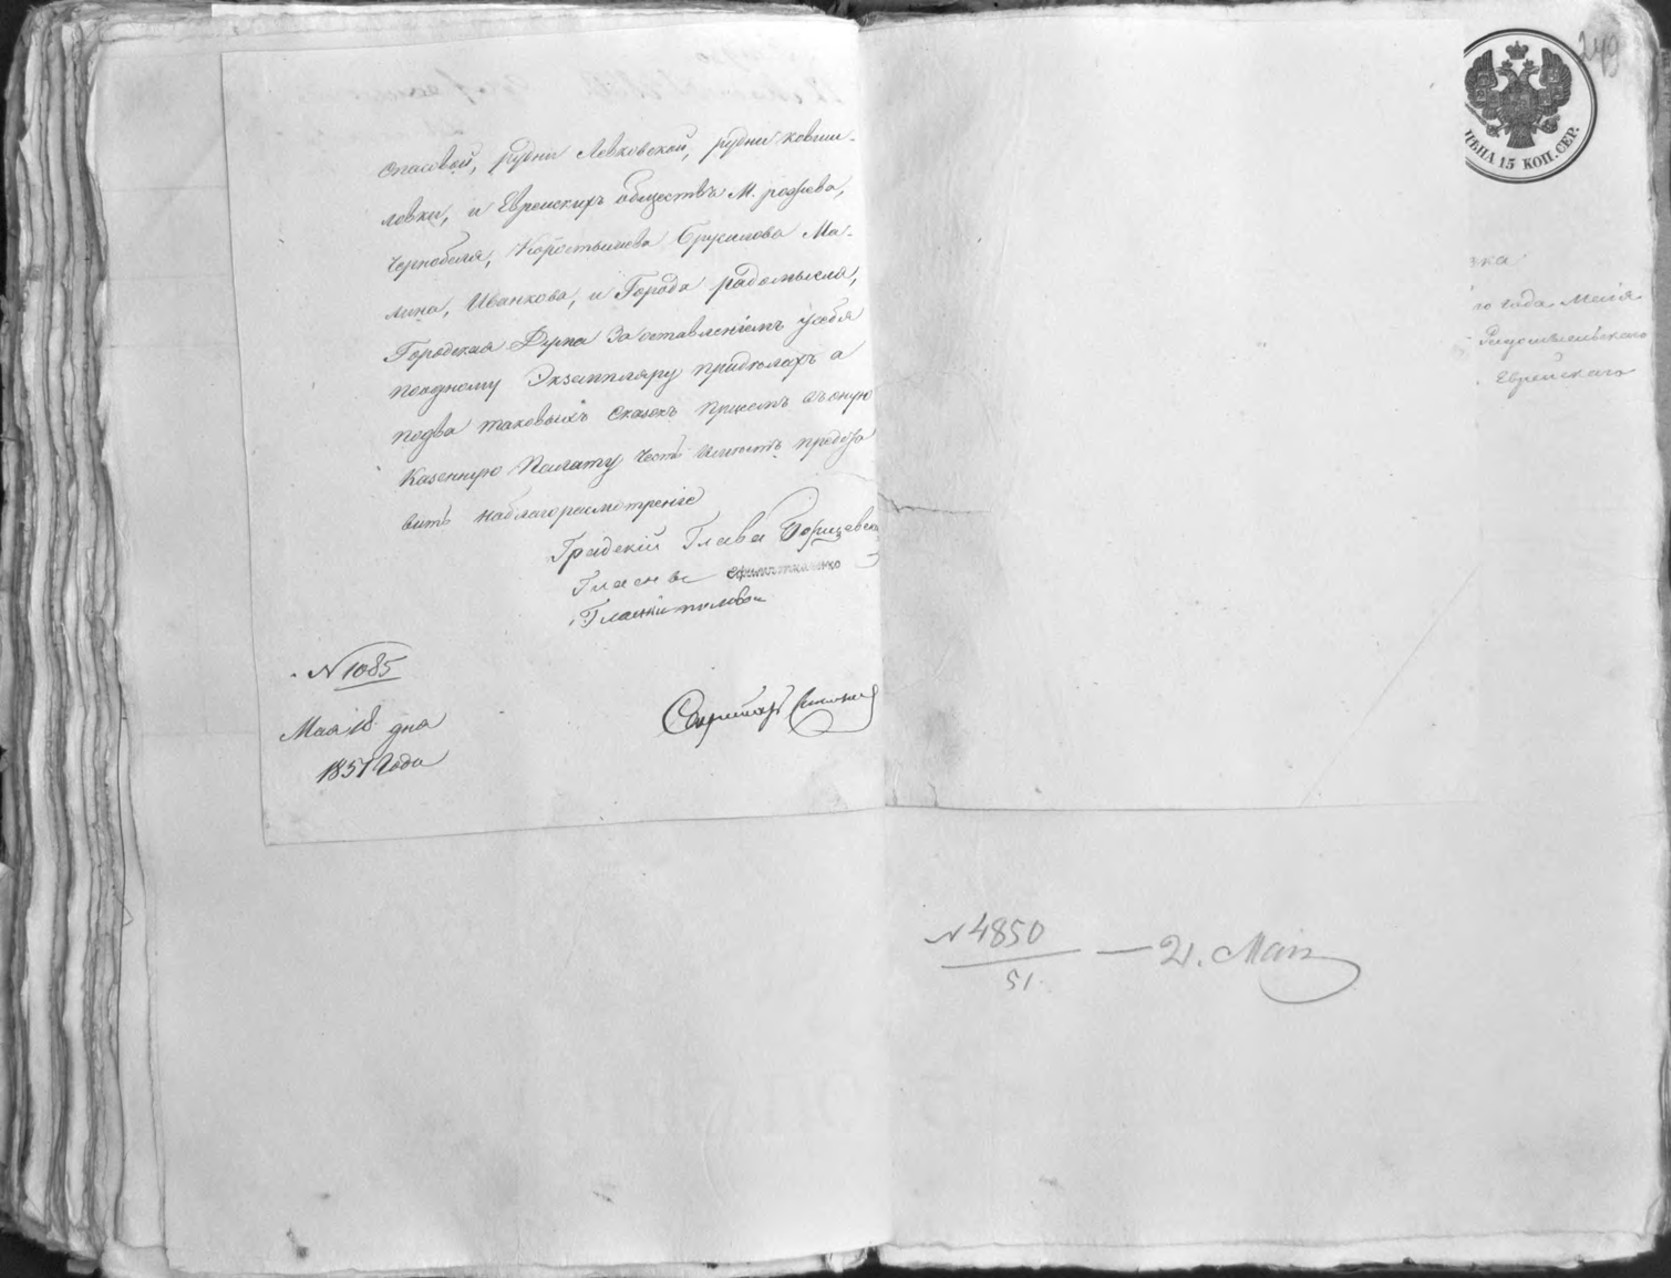 Спасовой, рудни Левковской, рудни Ковши-
ловки, и Еврейскихъ обществъ М. рожева,
Чернобыля, Коростышева Брусилова Ма-
лина, Иванкова, и Города радомысля,
Городская Дума За оставленіемъ усебя
поодному Экземпляру придѣлахъ а
подва таковыхъ Сказокъ при семъ въоную
Казенную Палату Честь имѣетъ предста
вить наблагоразмотреніе
Градскій Глава
Гласны
Гласный
N 1085
Мая 18 дня
1851 Года
Секретарь
249
ЦѢНА 15 КОП. СЕР.
зка
го года Мая
Радомысльскаго
Еврейскаго
N 4850
51.
— 21. Мая